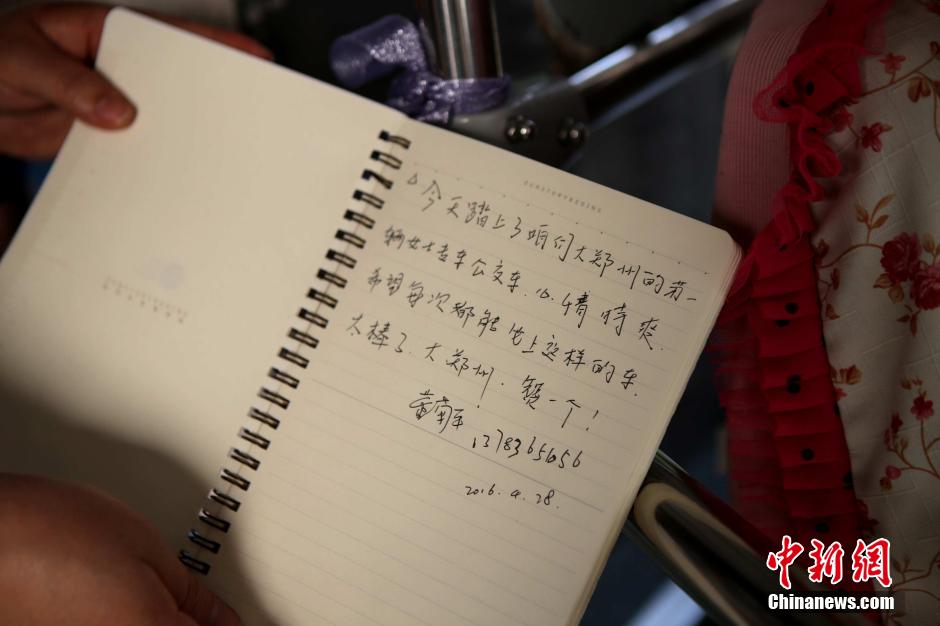 今天踏上了咱们大郑州的第一
辆女士专车公交车.心情特爽.
希望每次都能坐上这样的车.
太棒了.大郑州.赞一个!
2016.4.28
中新网
Chinanews.com